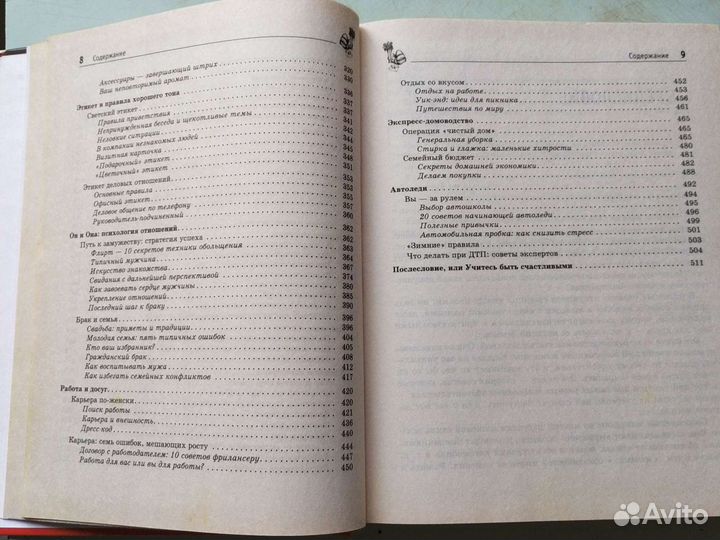 8 Содержание
Аксессуары — завершающий штрих 330
Ваш неповторимый аромат 336
Этикет и правила хорошего тона 337
Светский этикет 337
Правила приветствия 337
Непринужденная беседа и щекотливые темы 341
Неловкие ситуации 344
В компании незнакомых людей 345
Визитная карточка 345
«Подарочный» этикет 348
«Цветочный» этикет 351
Этикет деловых отношений 353
Основные правила 353
Офисный этикет 355
Деловое общение по телефону 357
Руководитель-подчиненный 360
Он и Она: психология отношений 362
Путь к замужеству: стратегия успеха 362
Флирт — 10 секретов техники обольщения 362
Типичный мужчина 363
Искусство знакомства 367
Свидания с дальнейшей перспективой 374
Как завоевать сердце мужчины 380
Укрепление отношений 385
Последний шаг к браку 390
Брак и семья 396
Свадьба: приметы и традиции 396
Молодая семья: пять типичных ошибок 404
Кто ваш избранник? 405
Гражданский брак 408
Как воспитывать мужа 412
Как избегать семейных конфликтов 417
Работа и досуг 420
Карьера по-женски 420
Поиск работы 421
Карьера и внешность 436
Дресс-код 440
Карьера: семь ошибок, мешающих росту 444
Договор с работодателем: 10 советов фрилансеру 447
Работа для вас или вы для работы? 450
Содержание 9
Отдых со вкусом 452
Отдых на работе 453
Уик-энд: идеи для пикника 456
Путешествия по миру 461
Экспресс-домоводство 465
Операция «чистый дом» 465
Генеральная уборка 465
Стирка и глажка: маленькие хитрости 480
Семейный бюджет 481
Секреты домашней экономики 482
Делаем покупки 488
Автоледи 492
Вы — за рулем 494
Выбор автошколы 495
20 советов начинающей автоледи 496
Полезные привычки 499
Автомобильная пробка: как снизить стресс 501
«Зимние» правила 503
Что делать при ДТП: советы экспертов 504
Послесловие, или Учитесь быть счастливыми 511
Avito